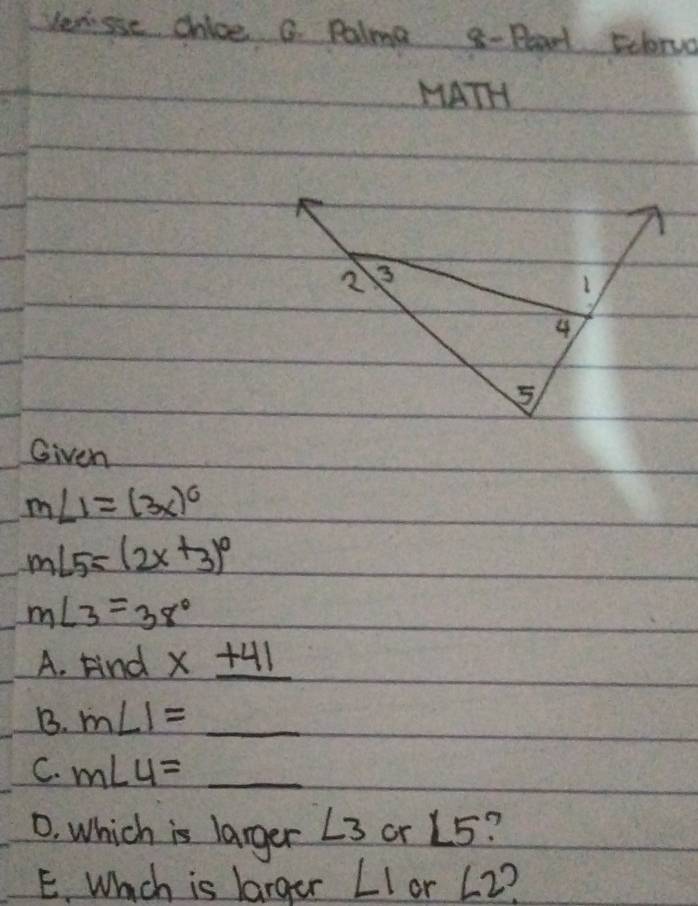 Venisse Chloe G. Palma 8-Pearl Februa
MATH
2 3 1
4
5
Given
m∠1=(3x)°
m∠5=(2x+3)°
m∠3=38°
A. Find x +41
B. m∠1= ____
C. m∠4= ____
D. Which is larger ∠3 or ∠5?
E. Which is larger ∠1 or ∠2?